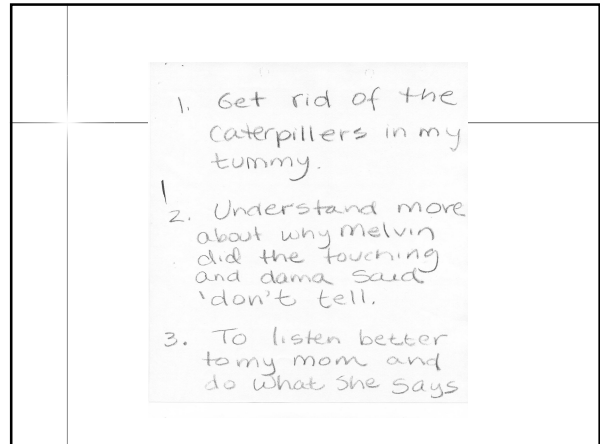 1. Get rid of the
caterpillers in my
tummy.
2. Understand more
about why Melvin
did the touching
and dama said
'don't tell.
3. To listen better
to my mom and
do what she says